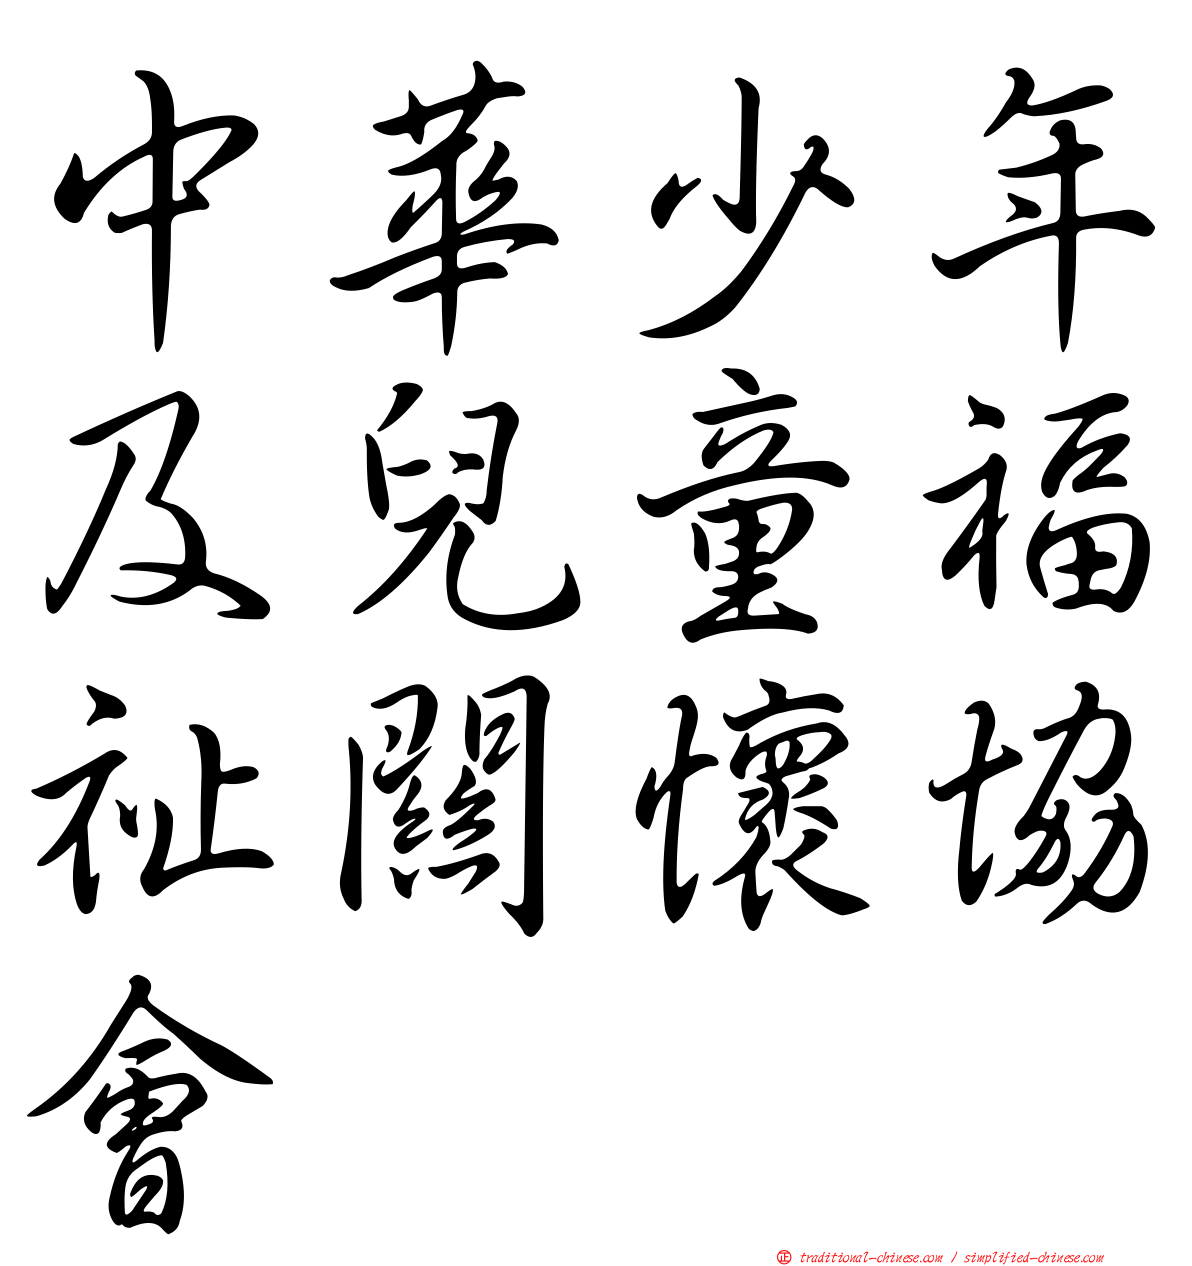 中華少年
及兒童福
祉關懷協
會
正 traditional-chinese.com / simplified-chinese.com